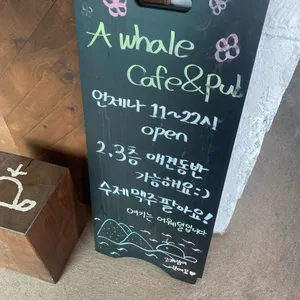 A whale
Cafe&Pub
언제나 11~22시
open
2,3층 애견동반
가능해요:)
수제맥주 팔아요!
여기는 어웨일입니다